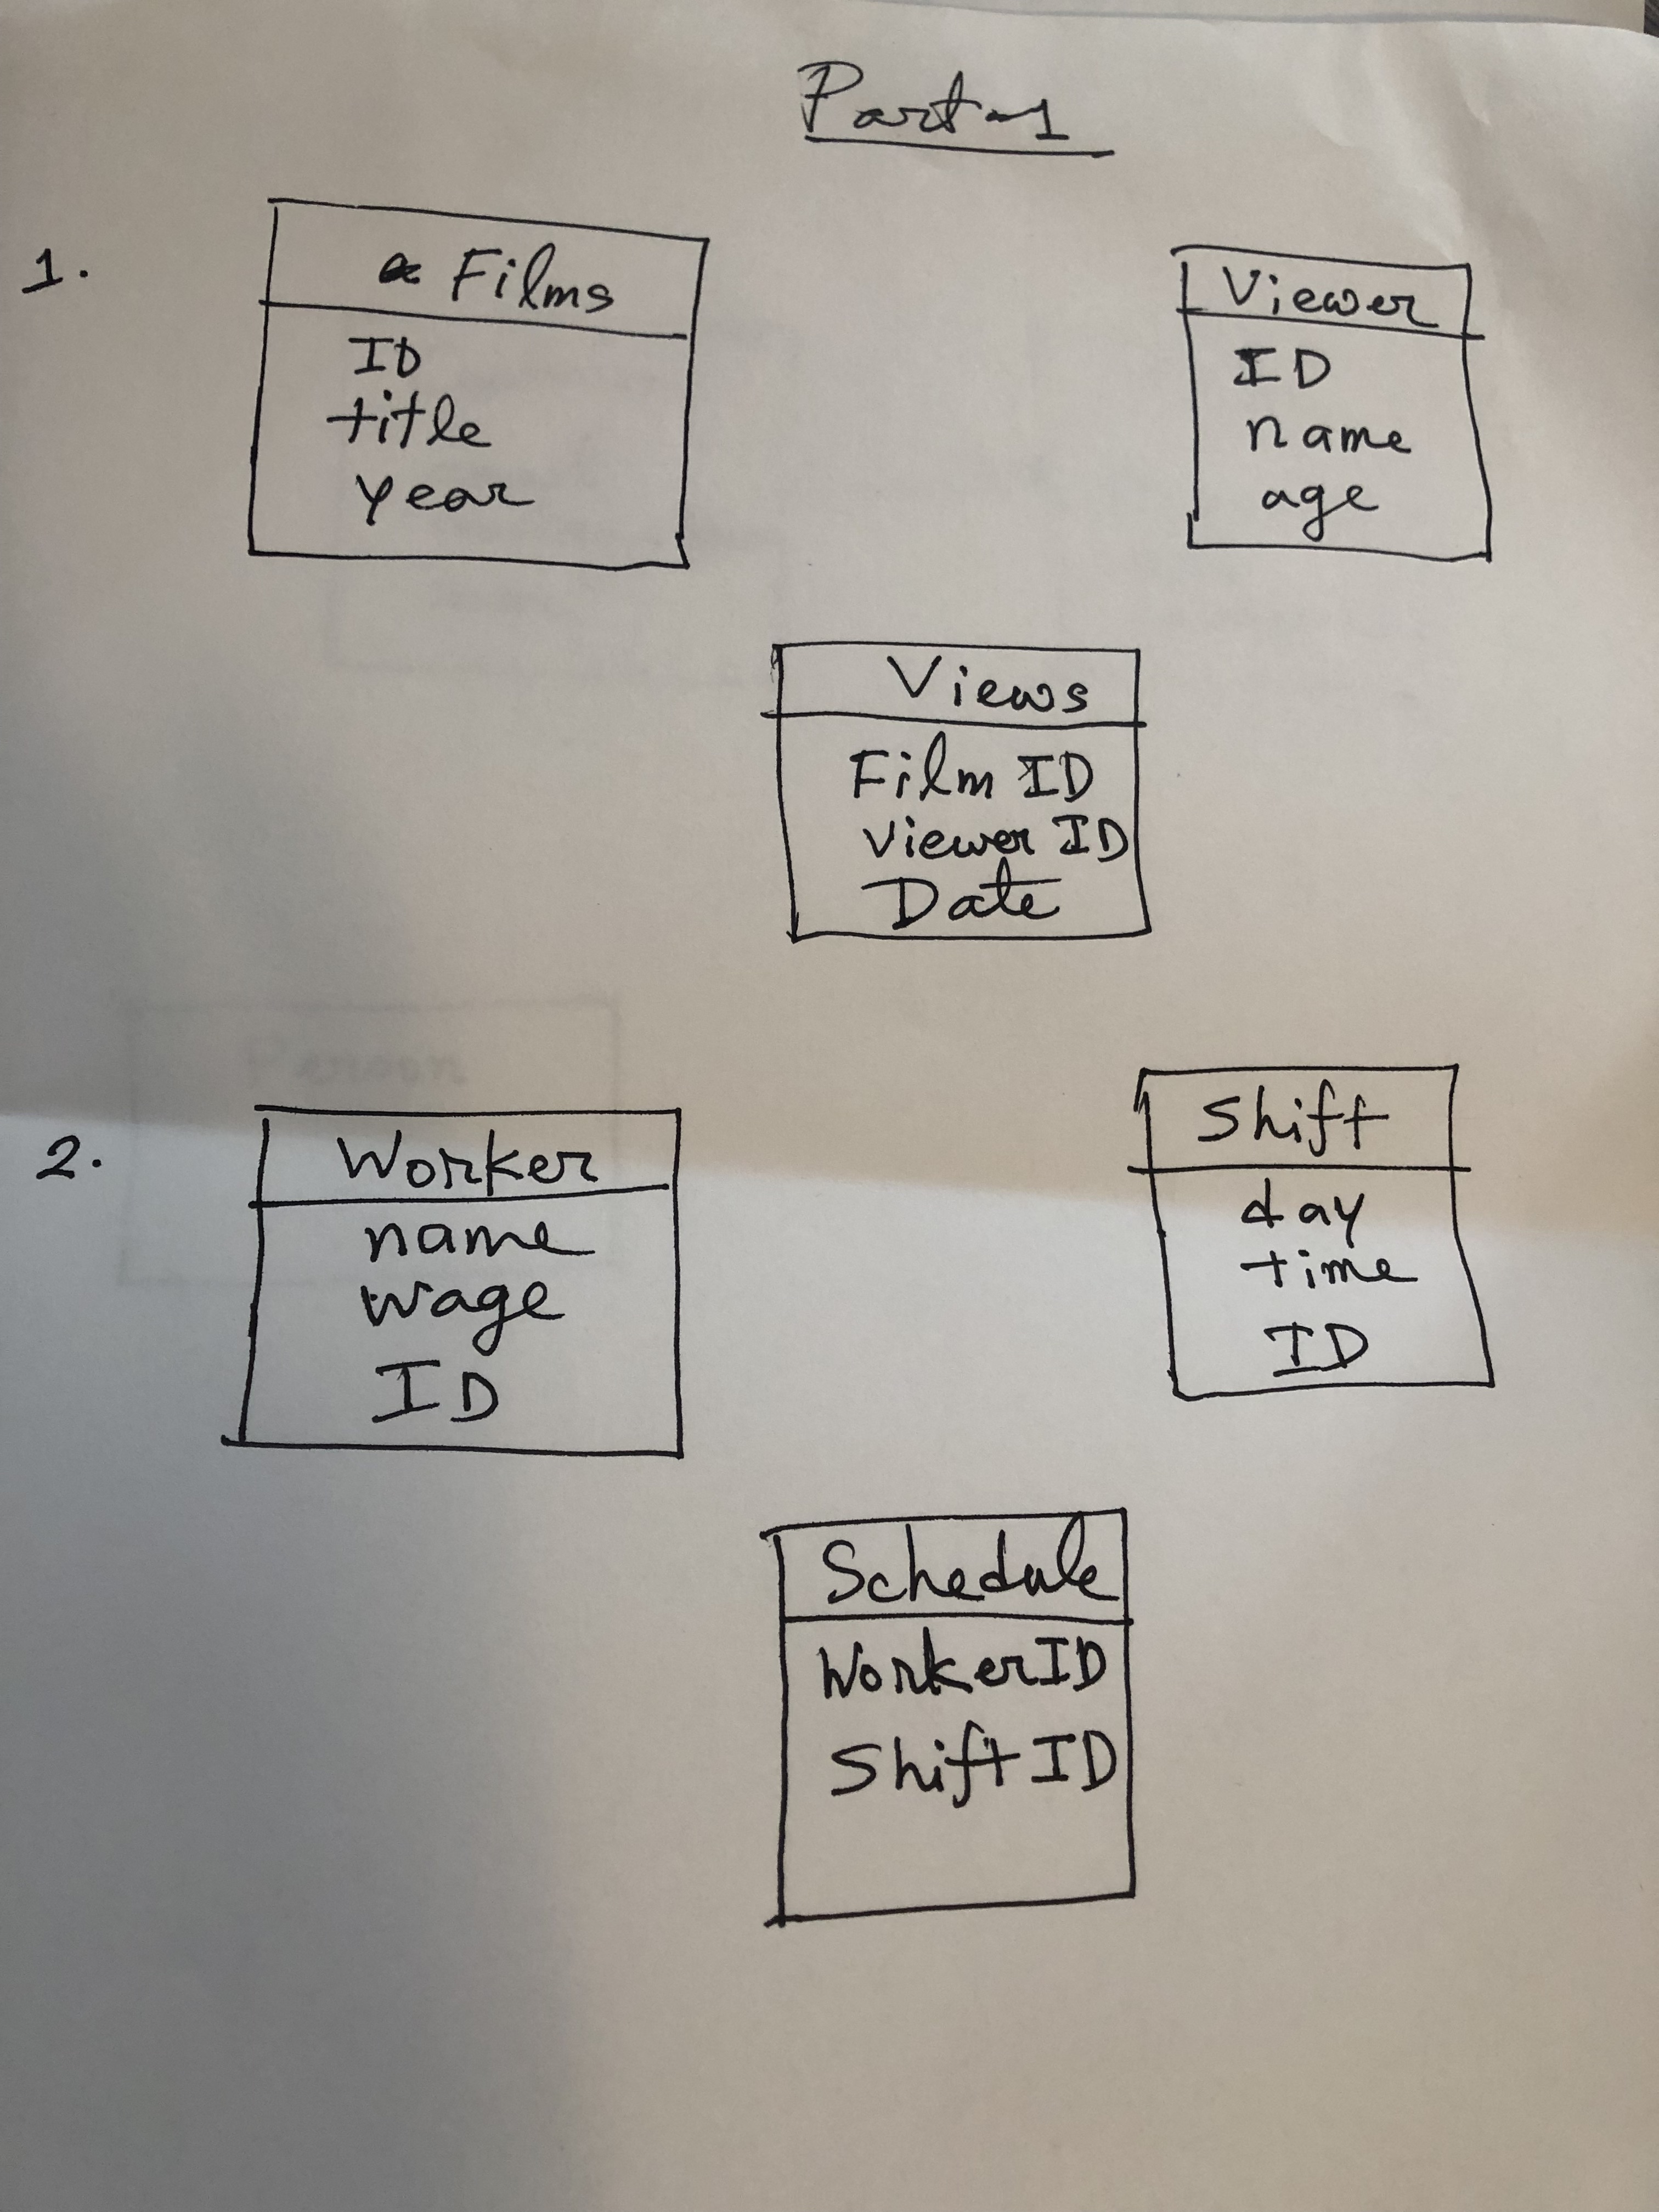 Part-1
1.
Films
ID
title
year
Viewer
ID
name
age
Views
Film ID
Viewer ID
Date
2.
Worker
name
wage
ID
Shift
day
time
ID
Schedule
WorkerID
Shift ID
Person